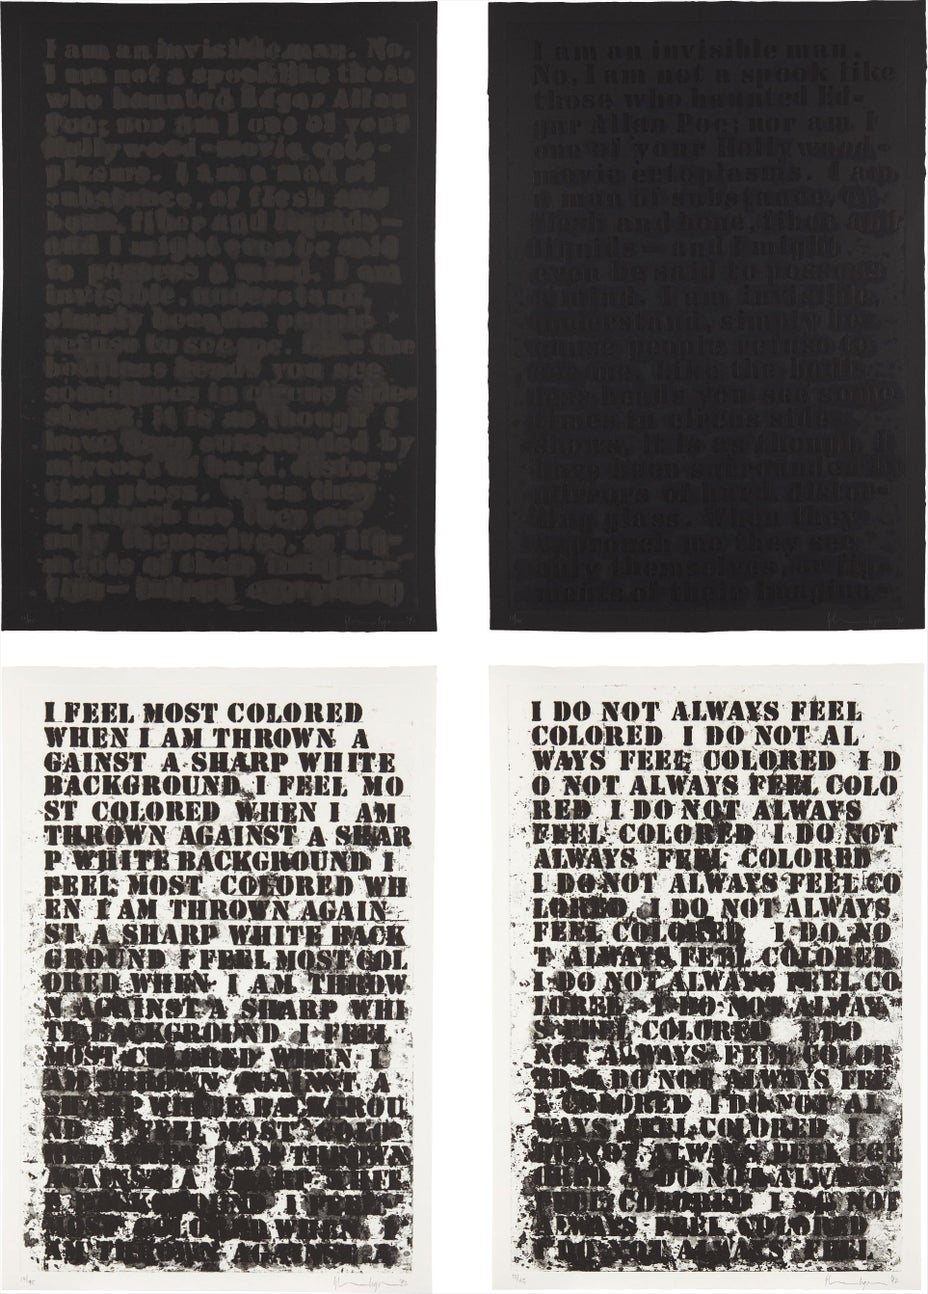 I am an invisible man. No,
I am not a spook like those
who haunted Edgar Allan
Poe; nor am I one of your
Hollywood-movie ecto-
plasms. I am a man of
substance, of flesh and
bone, fiber and liquids—
and I might even be said
to possess a mind. I am
invisible, understand,
simply because people
refuse to see me. Like the
bodiless heads you see
sometimes in circus side-
shows, it is as though I
have been surrounded by
mirrors of hard, distor-
ting glass. When they
approach me they see
only themselves, or fig-
ments of their imagina-
I am an invisible man.
No, I am not a spook like
those who haunted Ed-
gar Allan Poe; nor am I
one of your Hollywood-
movie ectoplasms. I am
a man of substance, of
flesh and bone, fiber and
liquids— and I might
even be said to possess
a mind. I am invisible,
understand, simply be-
cause people refuse to
see me. Like the bodi-
less heads you see some-
times in circus side-
shows, it is as though I
have been surrounded by
mirrors of hard, distor-
ting glass. When they
approach me they see
only themselves, or fig-
ments of their imagina-
I FEEL MOST COLORED
WHEN I AM THROWN A
GAINST A SHARP WHITE
BACKGROUND I FEEL MO
ST COLORED WHEN I AM
THROWN AGAINST A SHAR
P WHITE BACKGROUND I
FEEL MOST COLORED WH
EN I AM THROWN AGAIN
ST A SHARP WHITE BACK
GROUND I FEEL MOST COL
ORED WHEN I AM THROW
N AGAINST A SHARP WHI
TE BACKGROUND I FEEL
MOST COLORED WHEN I
AM THROWN AGAINST A
SHARP WHITE BACKGROU
ND I FEEL MOST COLO
RED WHEN I AM THROWN
AGAINST A SHARP WHITE
BACKGROUND I FEEL
MOST COLORED WHEN I
AM THROWN AGAINST A
I DO NOT ALWAYS FEEL
COLORED I DO NOT AL
WAYS FEEL COLORED I D
O NOT ALWAYS FEEL COLO
RED I DO NOT ALWAYS
FEEL COLORED I DO NOT
ALWAYS FEEL COLORED
I DO NOT ALWAYS FEEL CO
LORED I DO NOT ALWAYS
FEEL COLORED I DO NO
T ALWAYS FEEL COLORED
I DO NOT ALWAYS FEEL CO
LORED I DO NOT ALWAY
S FEEL COLORED I DO
NOT ALWAYS FEEL COLOR
ED I DO NOT ALWAYS FEE
L COLORED I DO NOT AL
WAYS FEEL COLORED I
DO NOT ALWAYS FEEL COL
ORED I DO NOT ALWAYS
FEEL COLORED I DO NOT
ALWAYS FEEL COLORED
I DO NOT ALWAYS FEEL